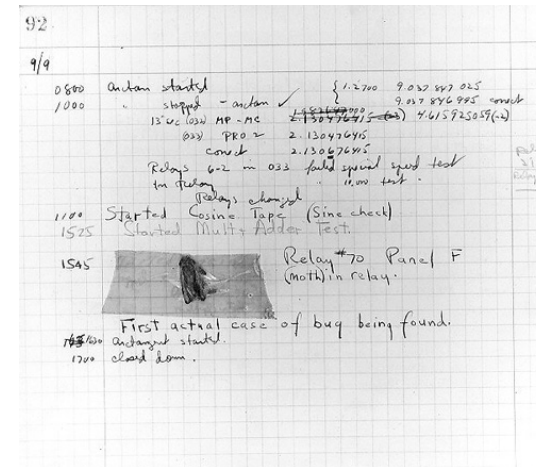 92
9/9
0800 antan started { 1.2700 9.037 847 025
1000 " stopped - antan ✓ 9.037 846 995 correct
13"uc (032) MP - MC 2.130476415 4.615925059(-2)
(033) PRO 2 2.130476415
correct 2.130676415
Relays 6-2 in 033 failed special speed test
in relay " 11.000 test.
Relays changed
1100 Started Cosine Tape (Sine check)
1525 Started Mult+Adder Test.
1545 Relay #70 Panel F
(moth) in relay.
First actual case of bug being found.
1630 antangent started.
1700 closed down.